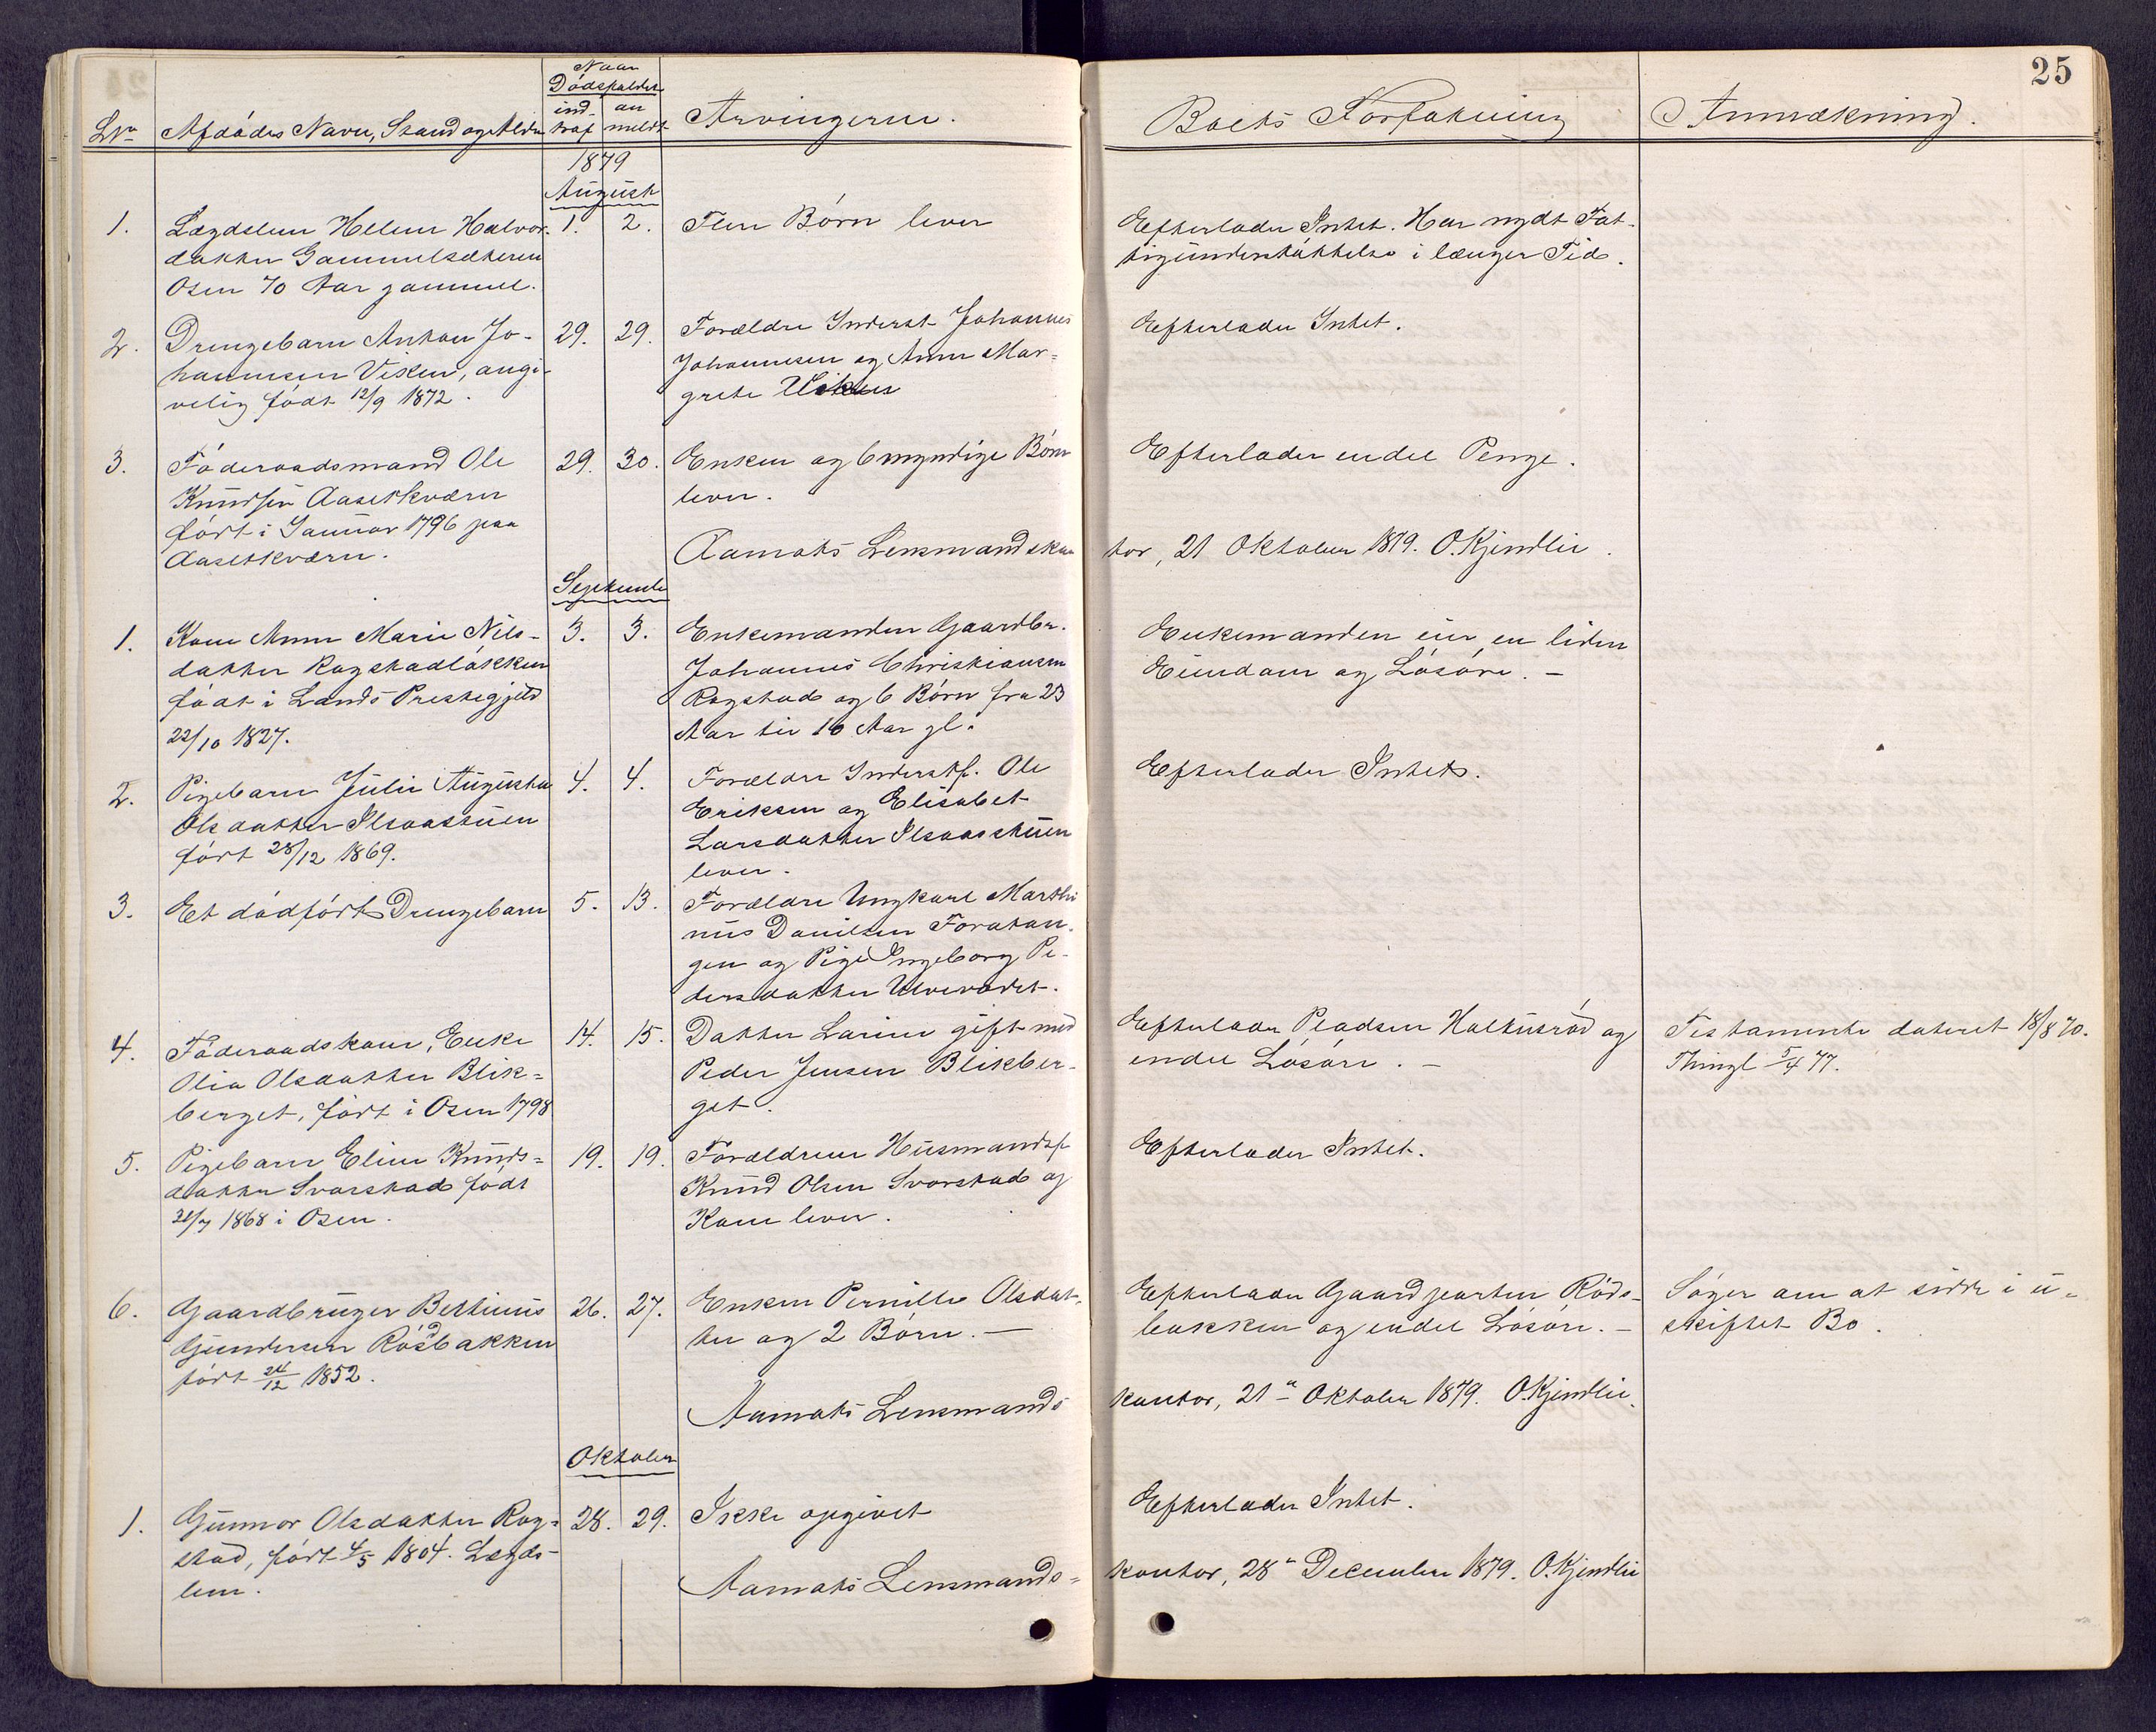 25
Naar
Dødsfaldet
ind- an
Lnr Afdødes Navn, Stand og Alder traf meldt Arvingerne. Boets Forfatning Anmærkning.
1879
August
1. Lægdslem Helene Halvors- 1. 2. Flere Børn lever Efterlader Intet. Har nydt Fat-
datter Gammelsæteren tigunderstøttelse i længer Tid.
Osen 70 Aar gammel.
2. Drengebarn Anton Jo- 29. 29. Forældre Inderst Johannes Efterlader Intet.
hannesen Viken, angi- Johannesen og Anne Mar-
velig født 12/9 1872. grete Viken
3. Føderaadsmand Ole 29. 30. Enken og 6 myndige Børn Efterlader endel Penge.
Knudsen Aasetkværn lever.
født i Januar 1796 paa
Aasetkværn. Aamots Lensmandskontor, 21 Oktober 1879. O. Kjendlie.
September
1. Kone Anne Marie Nils- 3. 3. Enkemanden Gaardbr. Enkemanden eier en liden
datter Rogstadløkken Johannes Christiansen Eiendom og Løsøre. –
født i Lands Prestegjeld Rogstad og 6 Børn fra 23
22/10 1827. Aar til 10 Aar gl.
2. Pigebarn Julie Augusta 4. 4. Forældre Inderstf. Ole Efterlader Intet.
Olsdatter Ilsaasstuen Eriksen og Elisabet
født 28/12 1869. Larsdatter Ilsaasstuen
lever.
3. Et dødfødt Drengebarn 5. 13. Forældre Ungkarl Marthi
nus Danielsen Foratan-
gen og Pige Ingeborg Pe-
dersdatter Ulvevadet.
4. Føderaadskone, Enke 14. 15. Datter Larine gift med Efterlader Pladsen Holtusrød og Testamente dateret 18/8 70.
Olia Olsdatter Blik- Peder Jensen Blikber- endel Løsøre. – Thingl 5/4 77.
berget, født i Osen 1798 get.
5. Pigebarn Eline Knuds- 19. 19. Forældrene Husmandsf. Efterlader Intet.
datter Svarstad født Knud Olsen Svarstad og
21/7 1868 i Osen. Kone lever.
6. Gaardbruger Bertinus 26. 27. Enken Pernille Olsdat- Efterlader Gaardparten Røds- Søger om at sidde i u-
Gundersen Rødsbakken ter og 2 Børn. – bakken og endel Løsøre. – skiftet Bo.
født 24/12 1852.
Aamots Lensmandskontor, 21de Oktober 1879. O. Kjendlie.
Oktober
1. Gunnor Olsdatter Rog- 28. 29. Ikke opgivet Efterlader Intet.
stad, født 4/5 1804. Lægds-
lem. Aamots Lensmands- kontor, 28de December 1879. O. Kjendlie